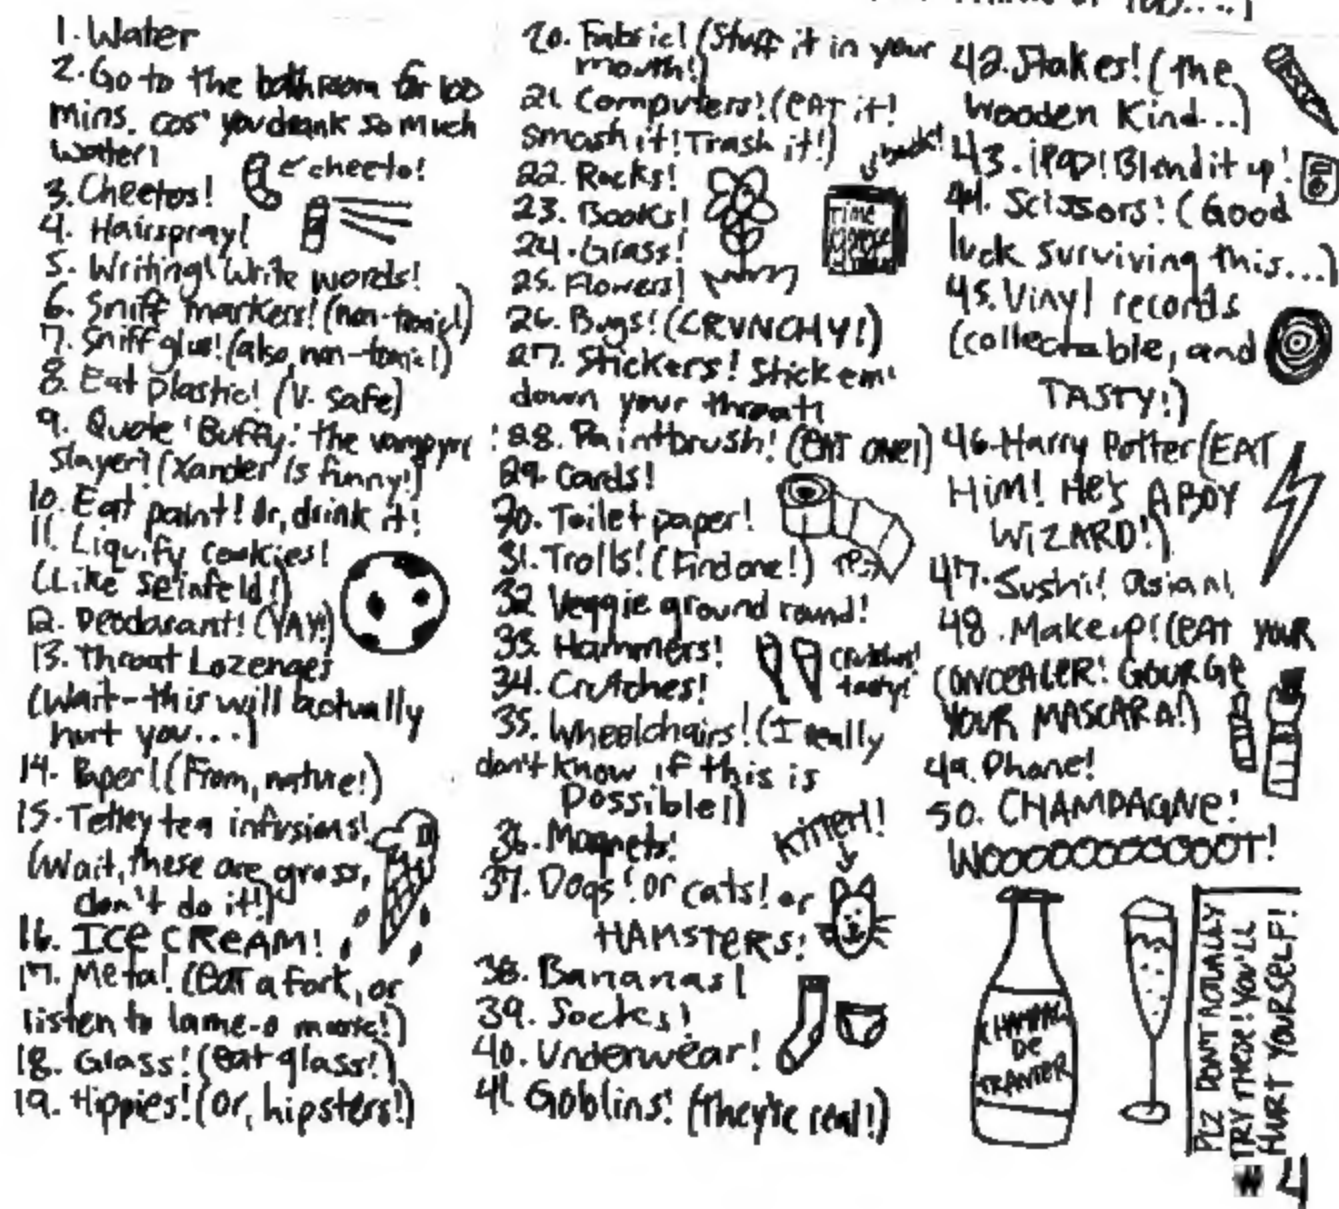 1. Water
2. Go to the bathroom for 100
mins. cos' you drank so much
water!
3. Cheetos!
cheeto!
4. Hairspray!
5. Writing! Write words!
6. Sniff markers! (non-toxic!)
7. Sniff glue! (also non-toxic!)
8. Eat plastic! (V. safe)
9. Quote 'Buffy: the vampyre
slayer'! (Xander is funny!)
10. Eat paint! Or, drink it!
11. Liquify cookies!
(Like Seinfeld!)
12. Deodarant! (YAY!)
13. Throat Lozenges
(Wait-this will actually
hurt you...)
14. Paper! (From, nature!)
15. Tetley tea infusions!
(Wait, these are gross,
don't do it!)
16. ICE CREAM!
17. Metal (eat a fork, or
listen to lame-o music!)
18. Glass! (eat glass!)
19. Hippies! (or, hipsters!)
20. Fabric! (Stuff it in your
mouth!)
21. Computers! (EAT it!
Smash it! Trash it!)
22. Rocks!
book!
23. Books!
24. Grass!
25. Flowers!
26. Bugs! (CRUNCHY!)
27. Stickers! Stick em'
down your throat!
28. Paintbrush! (EAT ONE!)
29. Cards!
30. Toilet paper!
31. Trolls! (Find one!)
TP
32. Veggie ground round!
33. Hammers!
34. Crutches!
Crutches!
tasty!
35. Wheelchairs! (I really
don't know if this is
possible!)
36. Magnets!
37. Dogs! or cats! or
HAMSTERS!
kitteh!
38. Bananas!
39. Socks!
40. Underwear!
41. Goblins! (they're real!)
42. Stakes! (the
wooden kind...)
43. iPod! Blend it up!
44. Scissors! (Good
luck surviving this...)
45. Vinyl records
(collectable, and
TASTY!)
46. Harry Potter (EAT
HIM! He's A BOY
WIZARD!)
47. Sushi! Asian!
48. Makeup! (EAT YOUR
CONCEALER! GOURGE
YOUR MASCARA!)
49. Phone!
50. CHAMPAGNE!
WOOOOOOOOOOOT!
CHAMPAG
DE
TRANTER
PLZ DON'T ACTUALLY
TRY THESE! YOU'LL
HURT YOURSELF!
W 4